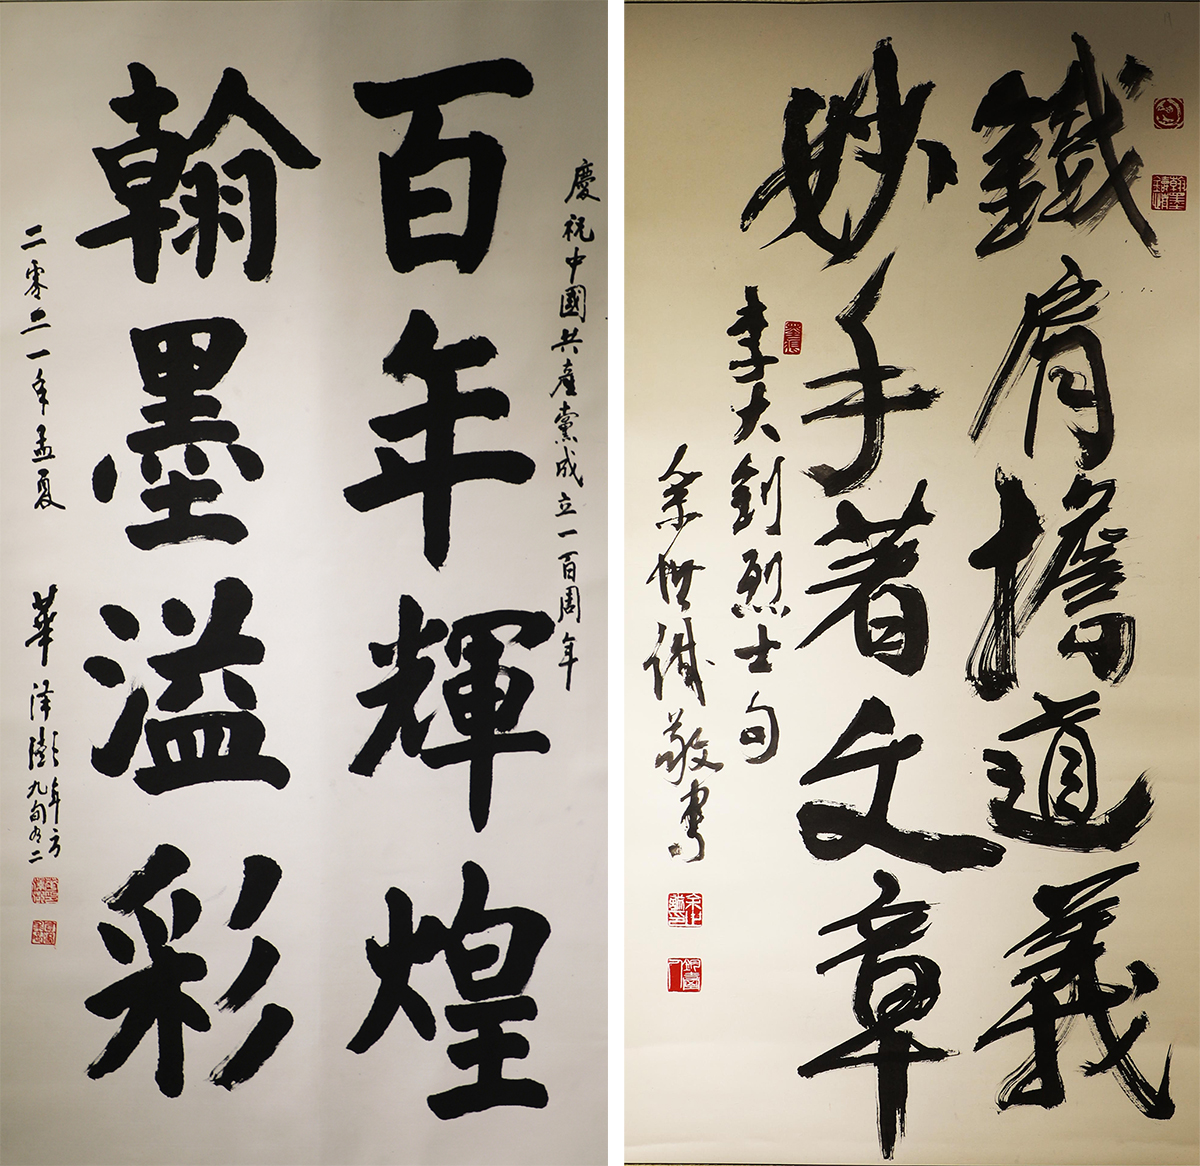 慶祝中國共產黨成立一百周年
百年輝煌
翰墨溢彩
二零二一年孟夏 華澤澎年方九旬有二
鐵肩擔道義
妙手著文章
李大釗烈士句
余世誠敬書